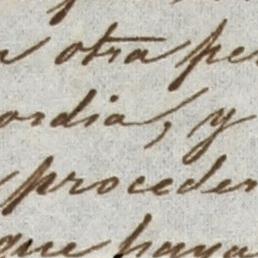 otra per
ordia, y
proceder
que haya